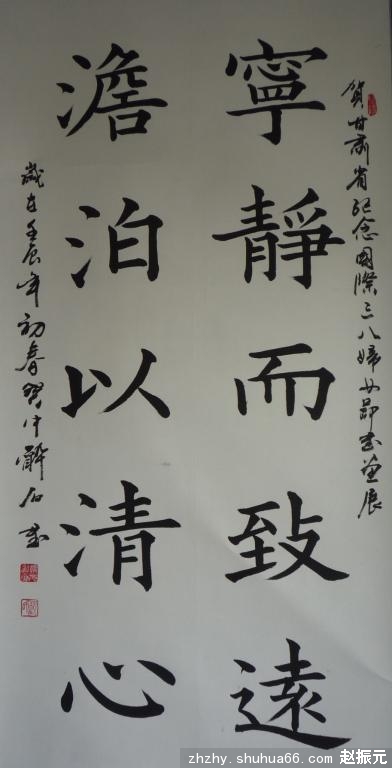 賀甘肅省紀念國際三八婦女節書畫展
寧靜而致遠
澹泊以清心
歲在壬辰年初春賀中
zhzhy.shuhua66.com 赵振元